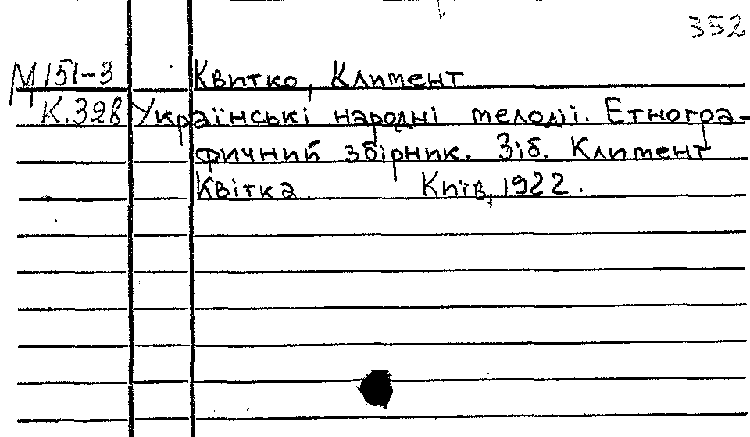 352
М151-3 Квитко, Климент
К.328 Українські народні мелодії. Етногра-
фичний збірник. Зіб. Климент
Квітка Київ, 1922.